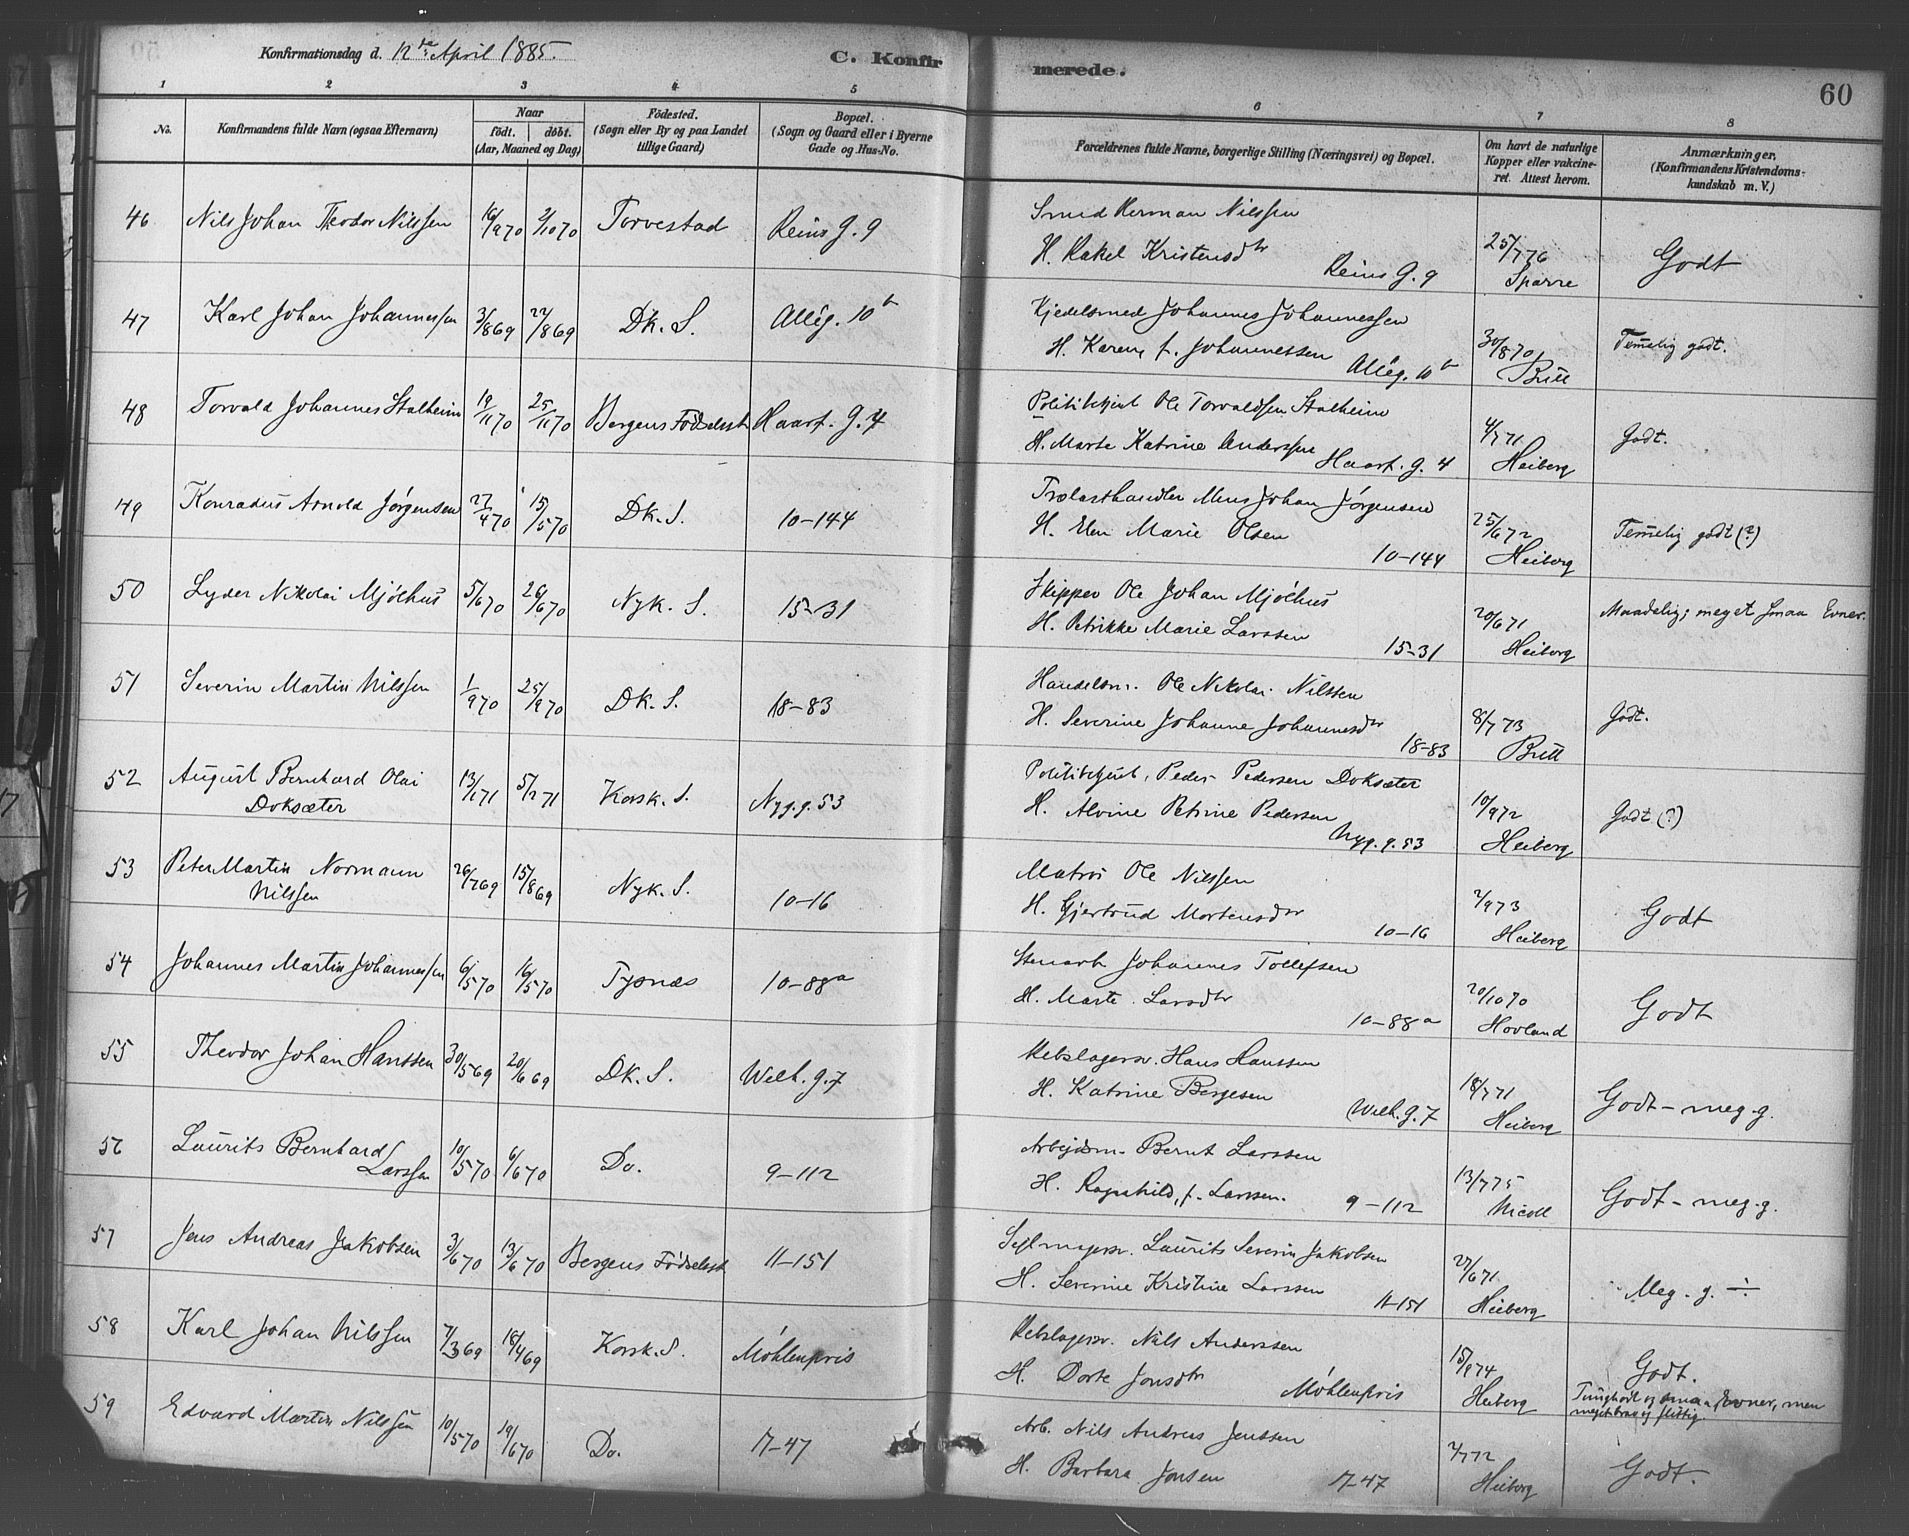 Konfirmationsdag d. 12te April 1885. C. Konfirmerede. 60
1 2 3 4 5 6 7 8
No. Konfirmandens fulde Navn (ogsaa Efternavn) Naar født. døbt. (Aar, Maaned og Dag) Fødested. (Sogn eller By og paa Landet tillige Gaard) Bopæl. (Sogn og Gaard eller i Byerne Gade og Hus-No. Forældrenes fulde Navne, borgerlige Stilling (Næringsvei) og Bopæl. Om havt de naturlige Kopper eller vakcineret. Attest herom. Anmærkninger. (Konfirmandens Kristendomskundskab m. V.)
46 Nils Johan Theodor Nilssen 16/9 70 2/10 70 Torvestad Reins G. 9 Smed Herman Nilssen
H. Rakel Kristensdtr Reins G. 9 25/7 76 Sparre Godt
47 Karl Johan Johannessen 3/8 69 22/8 69 Dk. S. Alleg. 10b Kjedelsmed Johannes Johannessen
H. Karen f. Johannessen Alleg. 10b 30/8 70 Britt Temelig godt.
48 Torvald Johannes Stalheim 19/11 70 25/11 70 Bergens Fødselsst Haarf. G. 4 Politibetjent Ole Torvaldsen Stalheim
H. Marte Katrine Anderssen Haarf. g. 4 4/7 71 Heiberg Godt.
49 Konradus Arnold Jørgensen 27/4 70 15/5 70 Dk. S. 10-144 Trælasthandler Mens Johan Jørgensen
H. Elen Marie Olsen 10-144 25/6 72 Heiberg Temelig godt (?)
50 Lyder Nikolai Mjølhus 5/6 70 26/6 70 Nyk. S. 15-31 Skipper Ole Johan Mjølhus
H. Petrikke Marie Larssen 15-31 20/6 71 Heiberg Maadelig; meget smaa Evner.
51 Severin Martin Nilssen 1/9 70 25/9 70 Dk. S. 18-83 Handelsm. Ole Nikolai Nilssen
H. Severine Johanne Johannesdtr 18-83 8/7 73 Britt Godt.
52 August Bernhard Olai 13/1 71 5/2 71 Korsk. S. Nyg. g. 53 Politibetjent. Peder Pedersen Doksæter
Doksæter H. Alvine Petrine Pedersen Nyg. g. 53 10/9 72 Heiberg Godt (?)
53 Peter Martin Normann 26/7 69 15/8 69 Nyk. S. 10-16 Matros Ole Nilssen
Nilssen H. Gjertrud Mortensdtr 10-16 2/9 73 Heiberg Godt
54 Johannes Martin Johannessen 6/5 70 16/5 70 Tysnæs 10-88a Stenarb Johannes Tollefsen
H. Marte Larsdtr 10-88a 20/10 70 Hovland Godt
55 Theodor Johan Hanssen 30/5 69 20/6 69 Dk. S. Welh. g. 7 Rebslagersv. Hans Hanssen
H. Katrine Børgesen Welh. g. 7 18/7 71 Heiberg Godt - meg. g.
56 Laurits Bernhard 10/5 70 6/6 70 Do. 9-112 Arbejdsm. Bernt Larssen
Larssen H. Ragnhild, f. Larssen. 9-112 13/7 75 Nicoll Godt - meg. g.
57 Jens Andreas Jakobsen 3/6 70 13/6 70 Bergens Fødselsst 11-151 Sejlmagersv. Laurits Severin Jakobsen
H. Severine Kristine Larssen 11-151 27/6 71 Heiberg Meg. g. ÷
58 Karl Johan Nilssen 7/3 69 18/4 69 Korsk. S. Møhlenpris Rebslagersv. Nils Anderssen
H. Dorte Jonsdtr Møhlenpris 15/9 74 Heiberg Godt.
Tunghørt og smaa Evner, men meget brav og flittig.
59 Edvard Martin Nilssen 10/5 70 19/6 70 Do. 17-47 Arb. Nils Andreas Jenssen
H. Barbara Jonsen 17-47 2/7 72 Heiberg Godt.